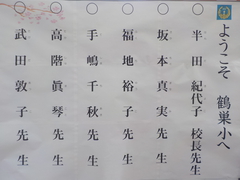 ようこそ 鶴巣小へ
○ 半田 紀代子 校長先生
○ 坂本 真実 先生
○ 福地 裕子 先生
○ 手嶋 千秋 先生
○ 高階 眞琴 先生
○ 武田 敦子 先生